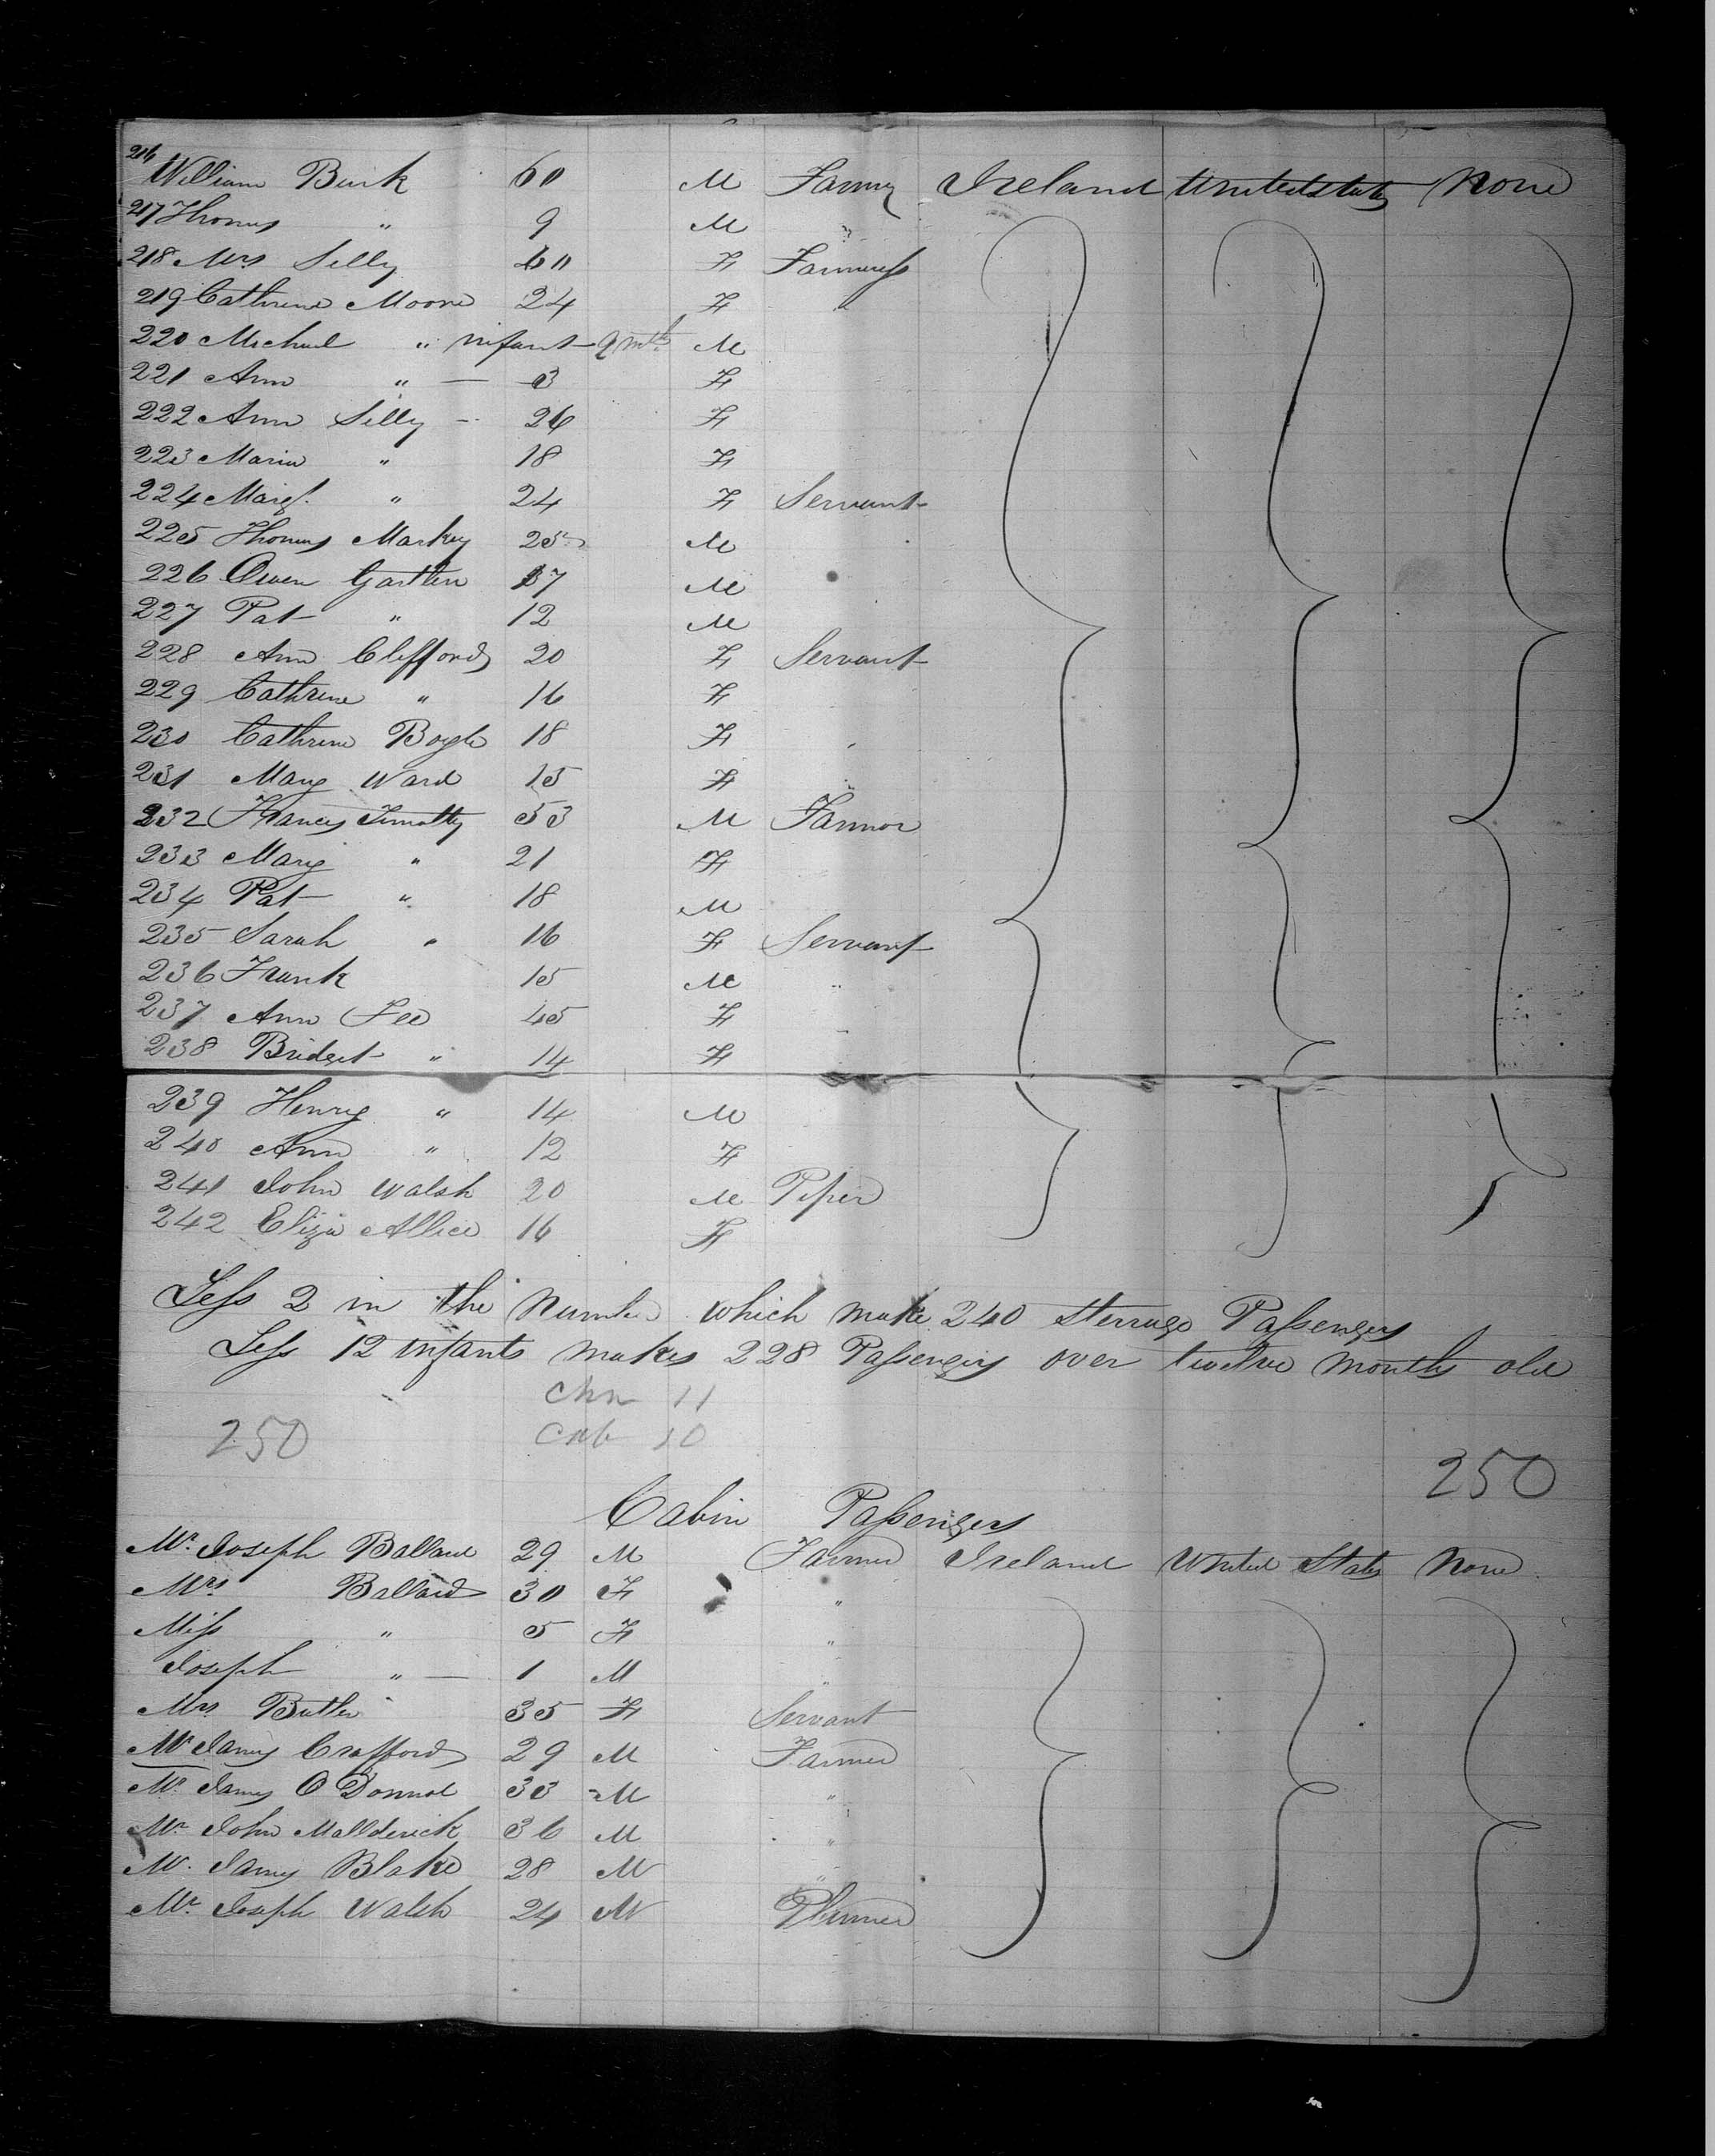 216 William Burk 60 M Farmer Ireland United States None
217 Thomas " 9 M "
218 Mrs Silly 60 F Farmeress
219 Cathrine Moore 24 F "
220 Michael " infant 9 mths M
221 Ann " — 3 F
222 Ann Silly - 26 F
223 Maria " 18 F
224 Margt. " 24 F Servant
225 Thomas Markey 25 M
226 Owen Gartlen 37 M
227 Pat " 12 M
228 Ann Clifford 20 F Servant
229 Cathrine " 16 F
230 Cathrine Boyle 18 F
231 Mary Ward 15 F
232 Francis Timotty 53 M Farmor
233 Mary " 21 F
234 Pat " 18 M
235 Sarah " 16 F Servant
236 Frank 15 M "
237 Ann Fee 45 F
238 Bridget " 14 F
239 Henry " 14 M
240 Ann " 12 F
241 John Walsh 20 M Piper
242 Eliza Allice 16 F
Less 2 in the Number which make 240 Sterrage Passengers
Less 12 infants makes 228 Passengers over twelve months old
Chn 11
250 Cab 10
250
Cabin Passengers
Mr. Joseph Ballard 29 M Farmer Ireland United States None
Mrs Ballard 30 F "
Miss " 5 F "
Joseph " — 1 M "
Mrs Butler 35 F Servant
Mr James Crafford 29 M Farmer
Mr. James O Donnal 33 M "
Mr John Mallderick 36 M "
Mr. James Blake 28 M "
Mr. Joseph Walsh 24 M